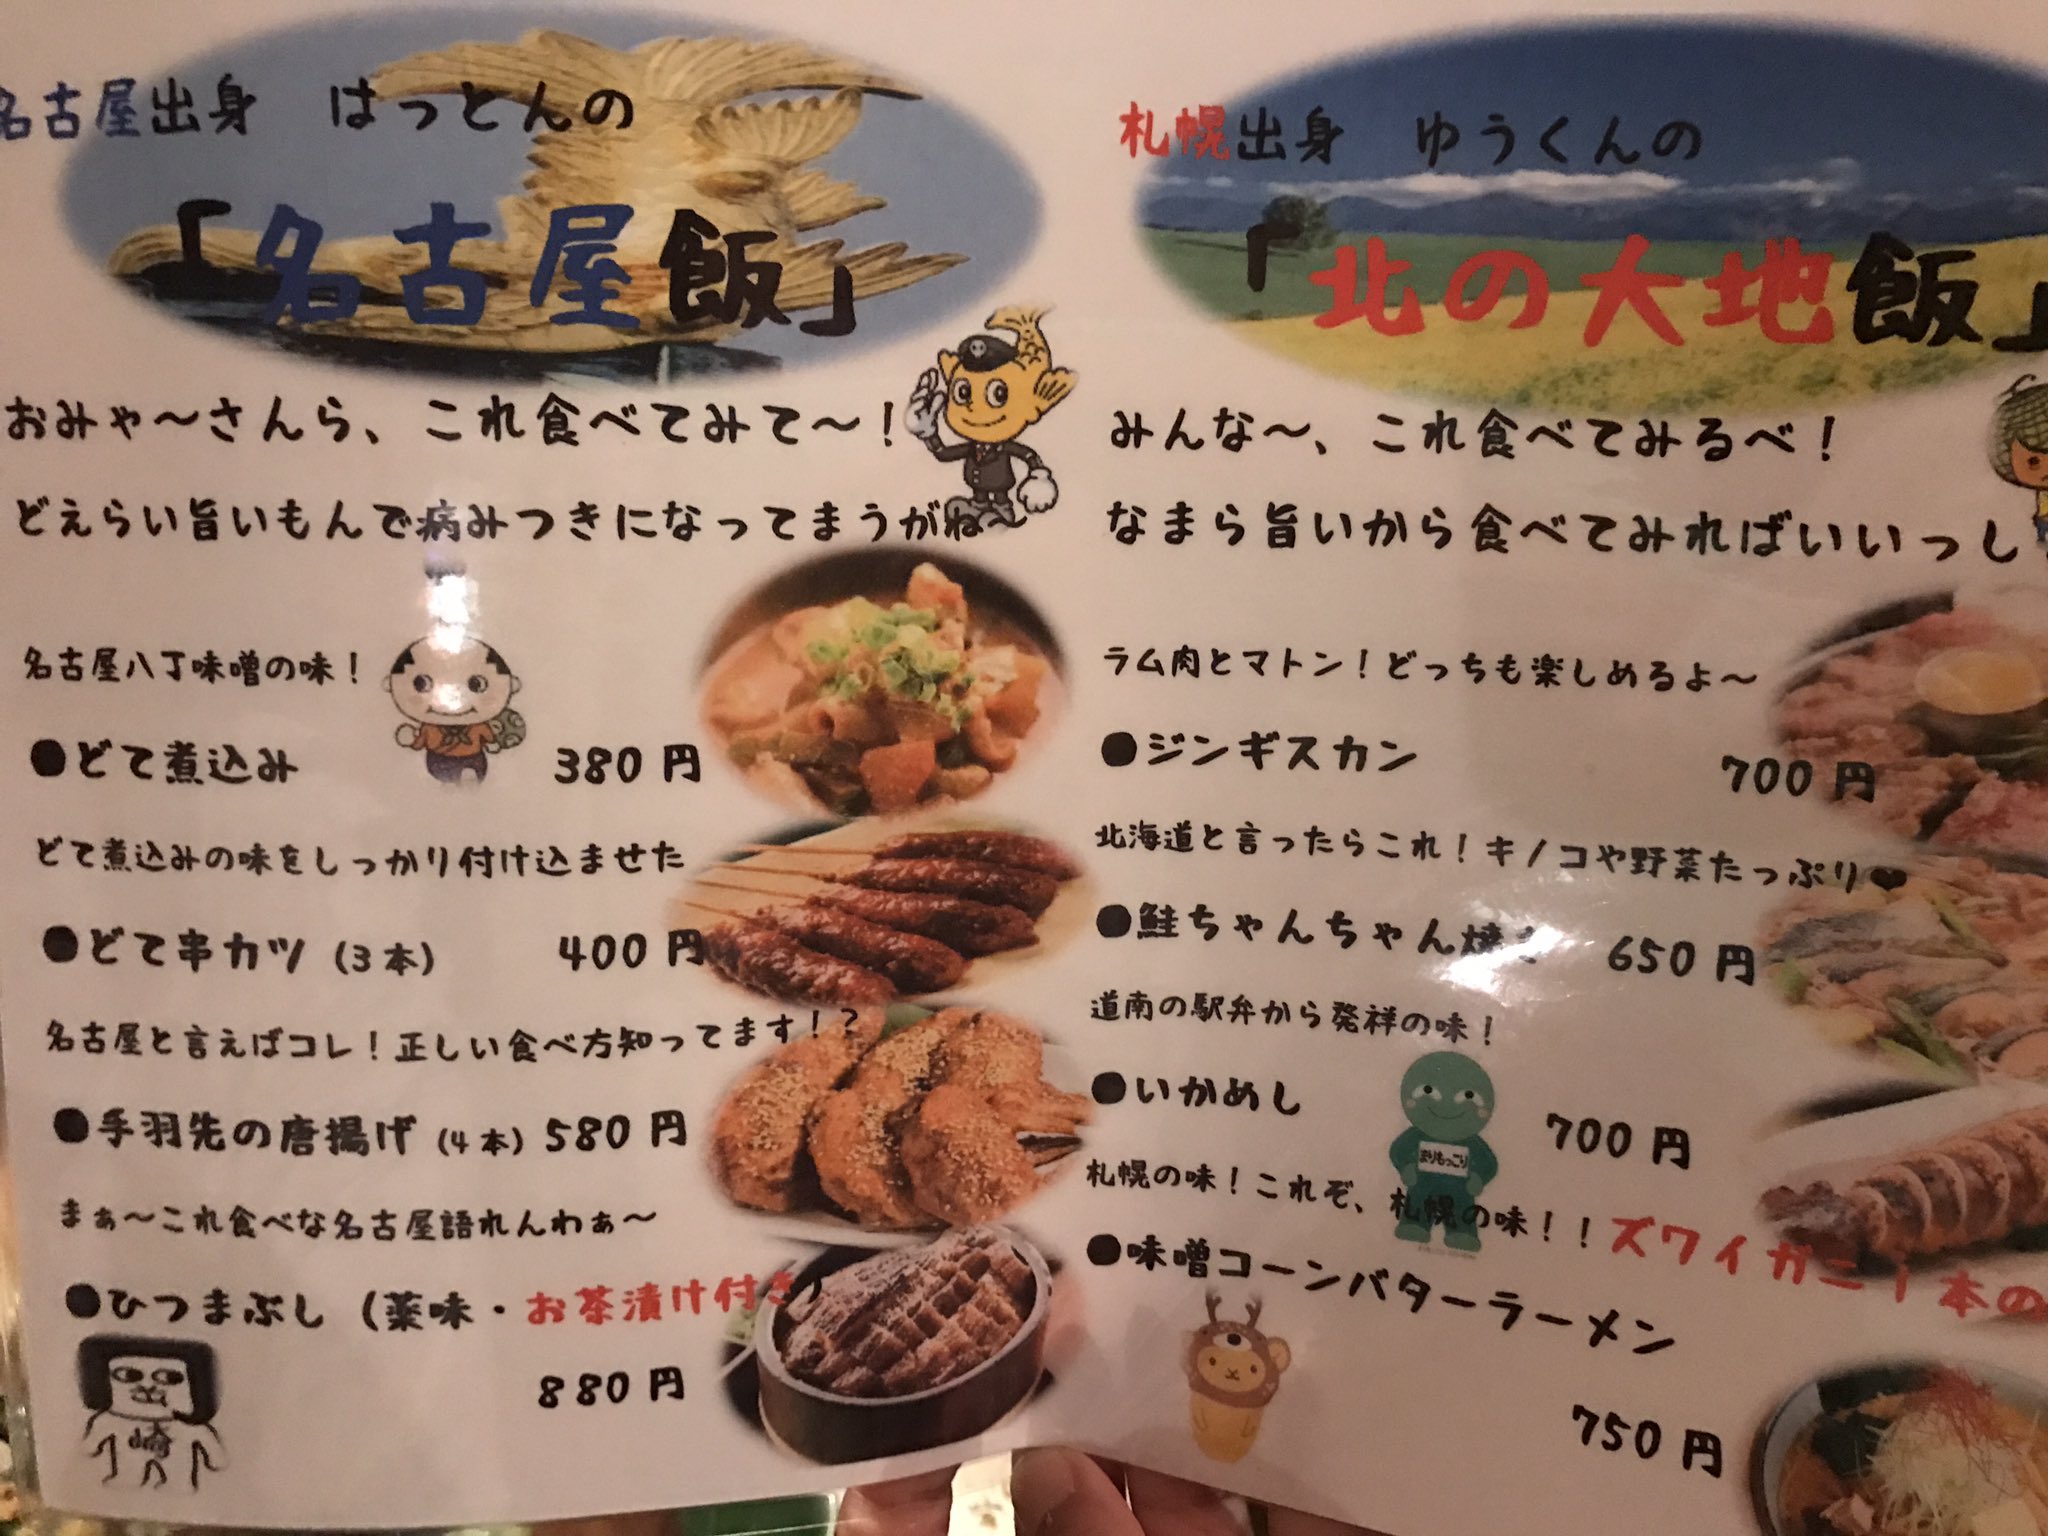 名古屋出身 はっとんの
「名古屋飯」
おみゃ〜さんら、これ食べてみて〜！
どえらい旨いもんで病みつきになってまうがね〜
名古屋八丁味噌の味！
●どて煮込み 380円
どて煮込みの味をしっかり付け込ませた
●どて串カツ（3本） 400円
名古屋と言えばコレ！正しい食べ方知ってます！？
●手羽先の唐揚げ（4本）580円
まぁ〜これ食べな名古屋語れんわぁ〜
●ひつまぶし（薬味・お茶漬け付き）
880円
崎
札幌出身 ゆうくんの
「北の大地飯」
みんな〜、これ食べてみるべ！
なまら旨いから食べてみればいいっし
ラム肉とマトン！どっちも楽しめるよ〜
●ジンギスカン 700円
北海道と言ったらこれ！キノコや野菜たっぷり❤
●鮭ちゃんちゃん焼き 650円
道南の駅弁から発祥の味！
●いかめし 700円
まりもっこり
札幌の味！これぞ、札幌の味！！ズワイガニ1本の
●味噌コーンバターラーメン
750円